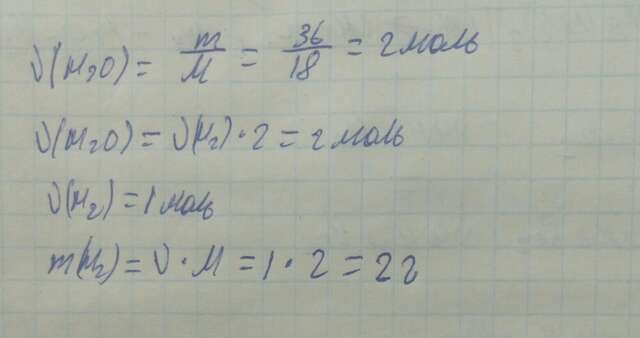 ν(H2O) = m/M = 36/18 = 2 моль
ν(H2O) = ν(H2) · 2 = 2 моль
ν(H2) = 1 моль
m(H2) = ν · M = 1 · 2 = 2 г